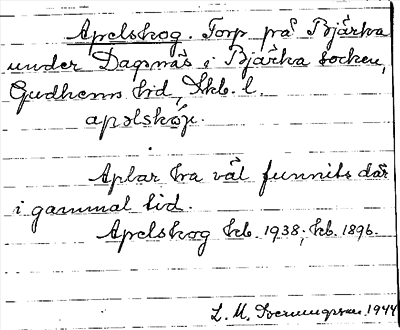 Apelskog. Torp på Bjärka
under Dagsnäs i Bjärka socken,
Gudhems hd, Skb. l.
apəlskóχ.
Aplar ha väl funnits där
i gammal tid.
Apelskog kb. 1938; kb. 1896.
L. M. 1944